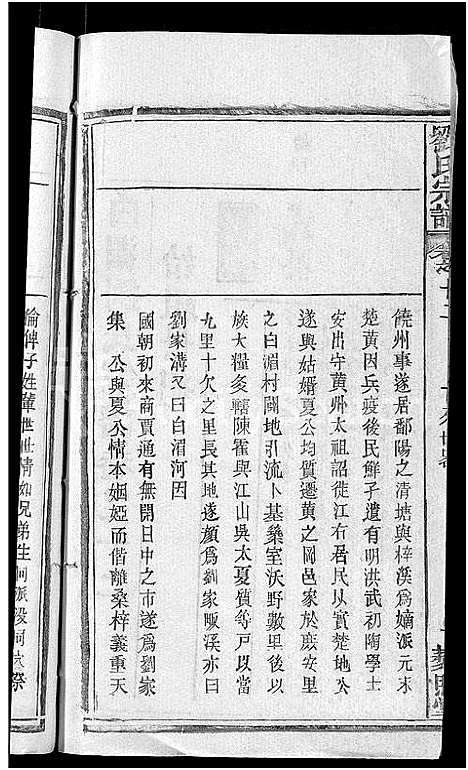 劉氏宗譜
饒州事遂居鄱陽之清塘與梓溪爲嫡派元末
楚黃因兵疫後民鮮孑遺有明洪武初陶學士
安出守黃州太祖詔徙江右居民以實楚地公
遂與姑婿夏公均質遷黃之岡邑家於庶安里
之白湄村闢地引流卜基築室沃野數里後以
族大糧多轄陳霍與江山吳太夏質等戶以當
九里十欠之里長其地遂顏爲劉家畈溪亦曰
劉家溝又曰白湄河因
國朝初來商賈通有無開日中之市遂爲劉家
集　公與夏公情本姻婭而偕離桑梓義重天
倫俾子姓輩世世情如兄弟生同派沒同